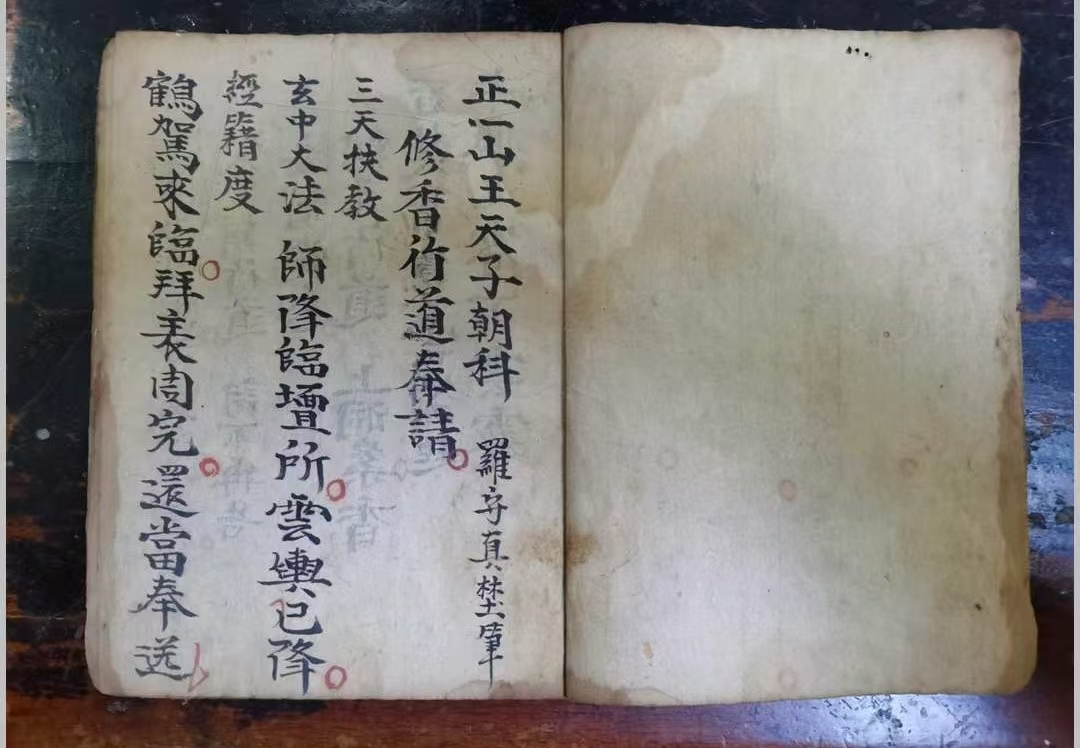 正一山王天子朝科 羅守真埜筆
修香行道奉請
三天扶教
玄中大法師降臨壇所雲輿已降
經籍度
鶴駕來臨拜表周完還當奉送